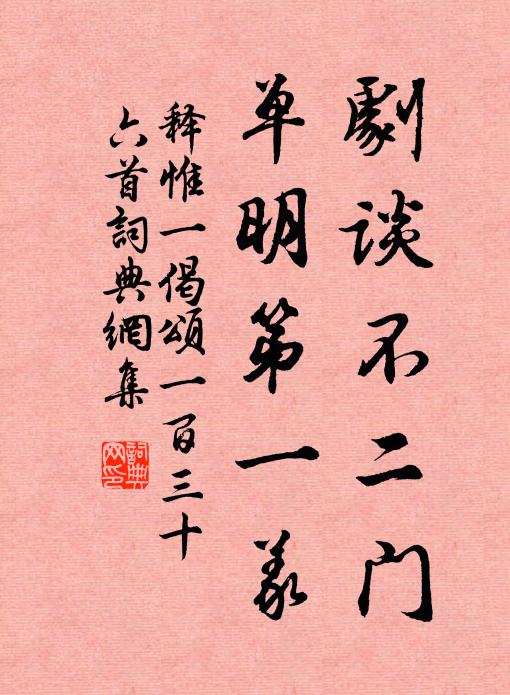 劇谈不二门
单明第一义
释惟一偈頌一百三十
六首詞典網集
詞典网印